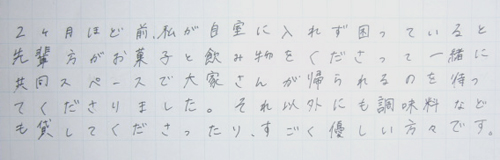 2ヶ月ほど前、私が自室に入れず困っていると
先輩方がお菓子と飲み物をくださって一緒に
共同スペースで大家さんが帰られるのを待っ
てくださりました。それ以外にも調味料など
も貸してくださったり、すごく優しい方々です。